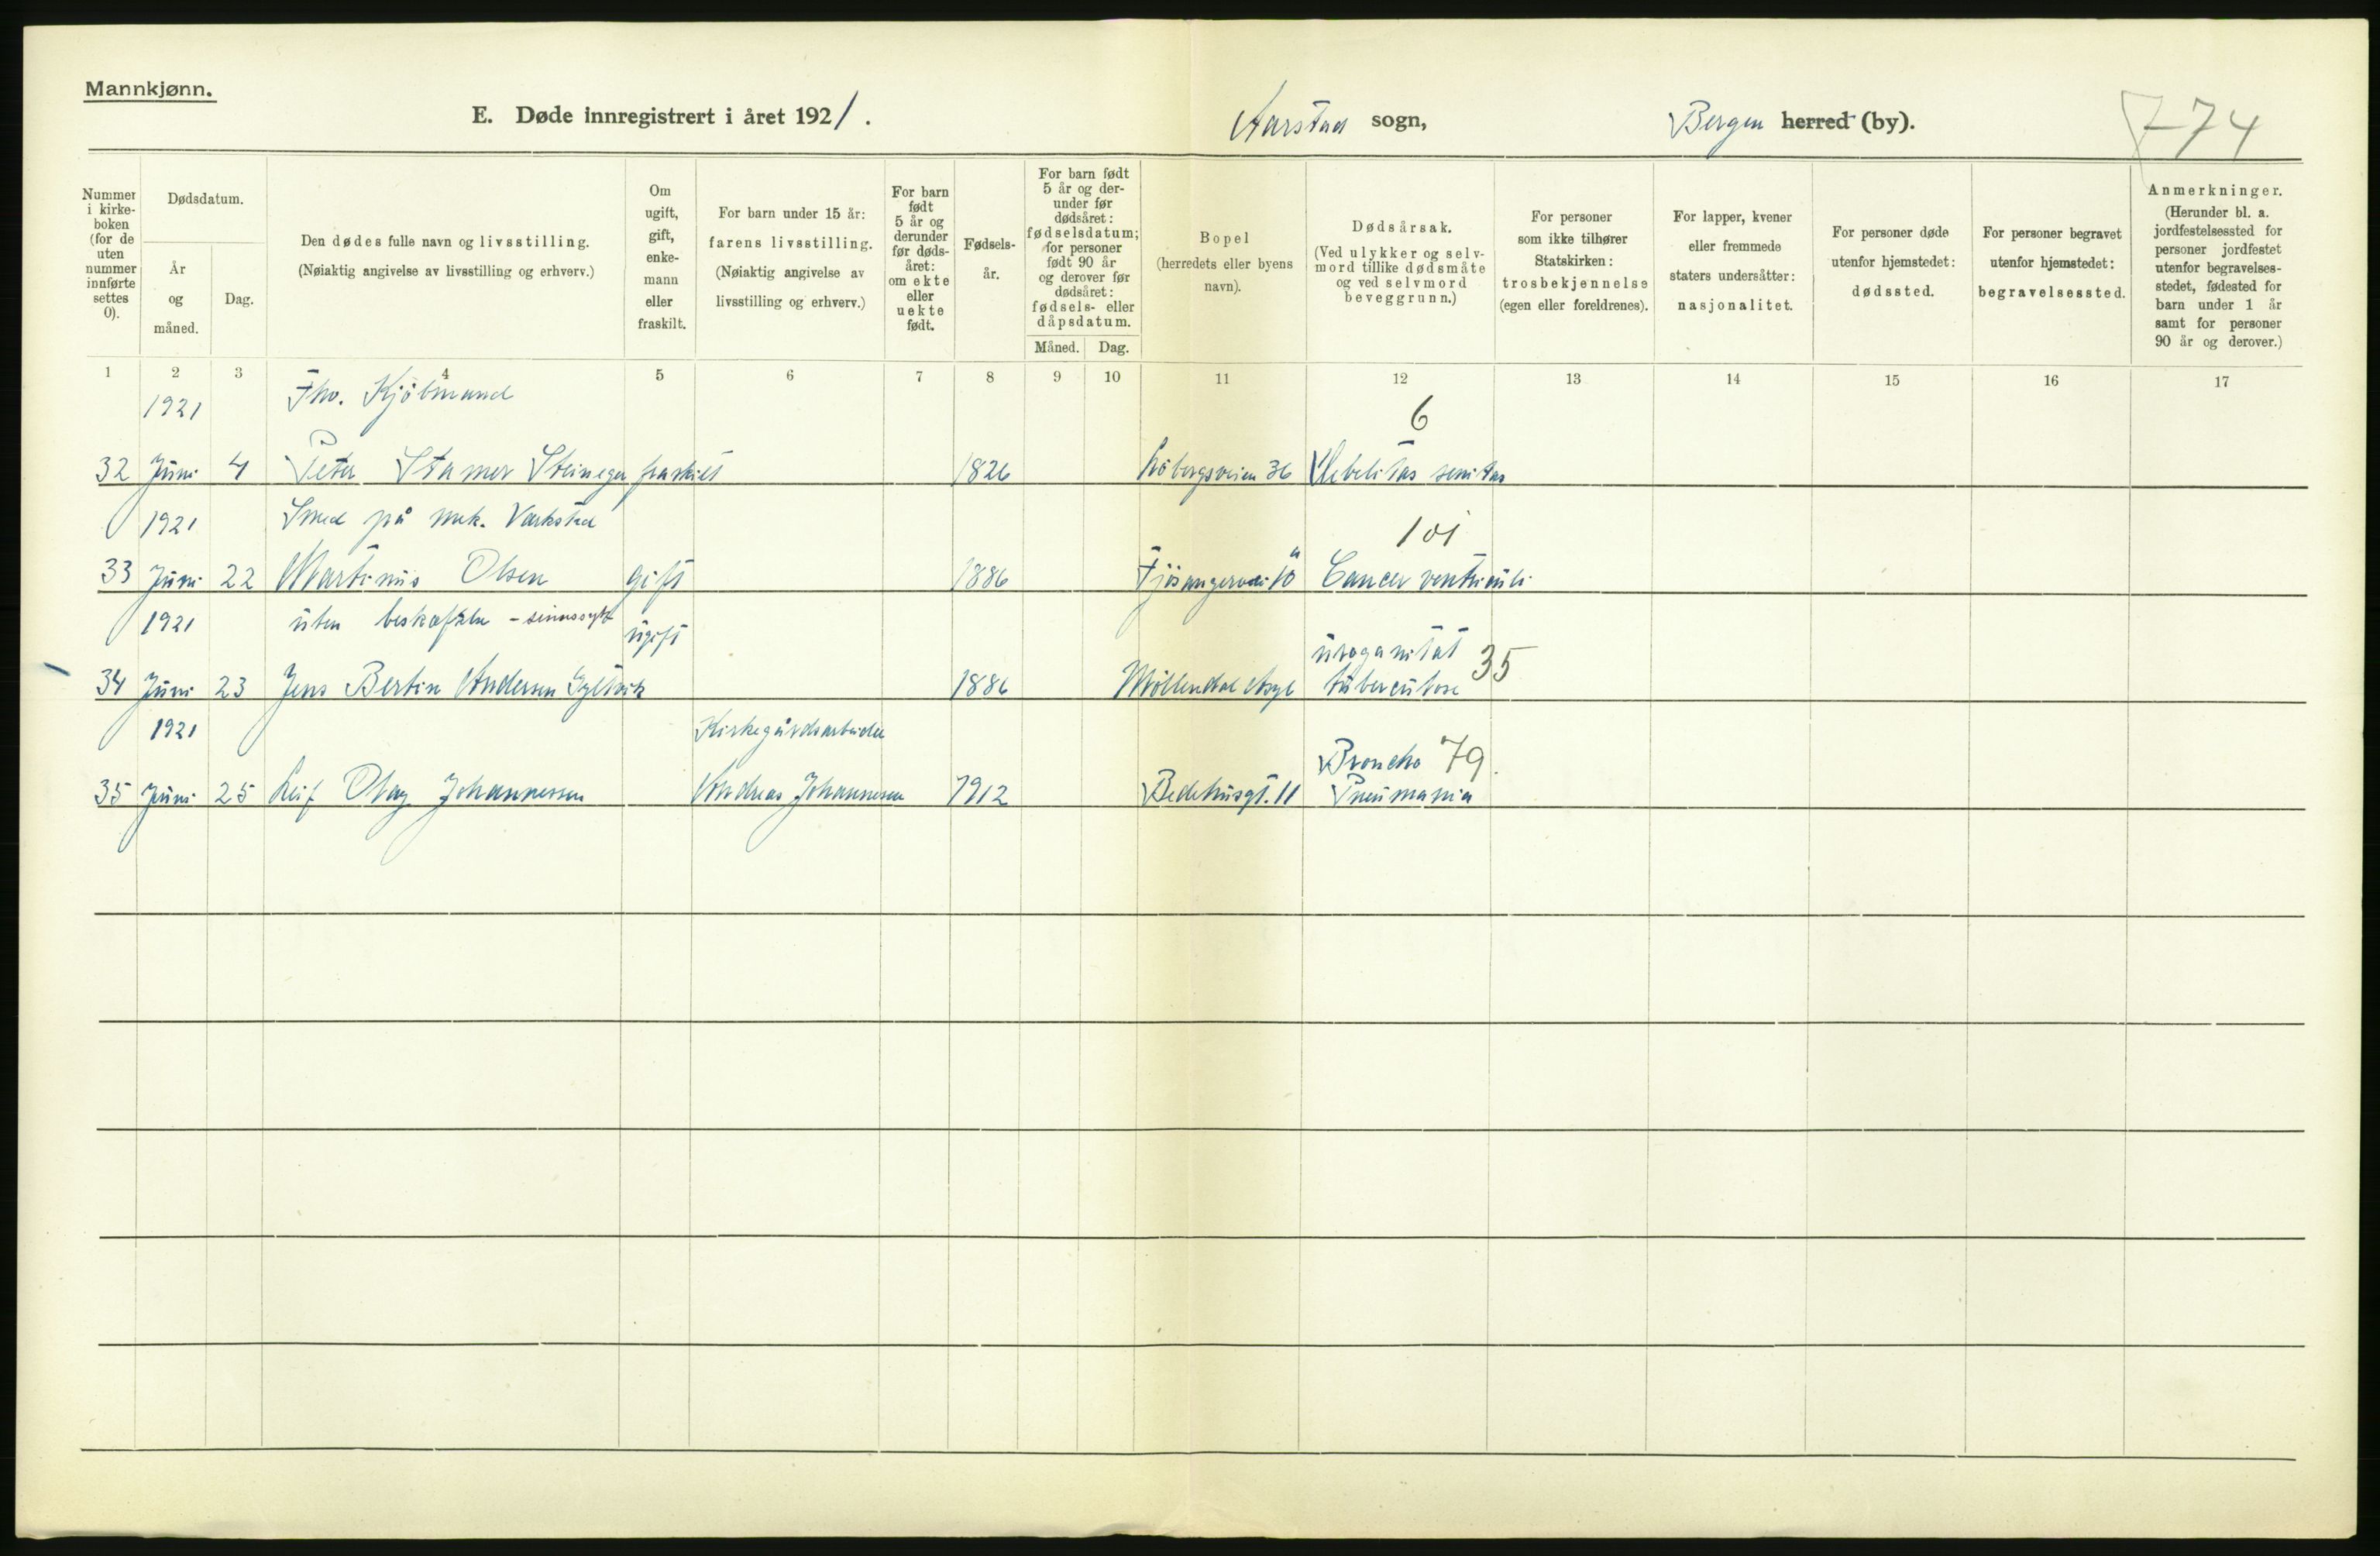 Mannkjønn.
E. Døde innregistrert i året 1921.
Aarstad sogn,
Bergen herred (by).
774
Nummer i kirke-boken (for de uten nummer innførte settes 0).
Dødsdatum.
År og måned.
Dag.
Den dødes fulle navn og livsstilling.
(Nøiaktig angivelse av livsstilling og erhverv.)
Om ugift, gift, enke-mann eller fraskilt.
For barn under 15 år:
farens livsstilling.
(Nøiaktig angivelse av livsstilling og erhverv.)
For barn født 5 år og derunder før døds-året: om ekte eller uekte født.
Fødsels-år.
For barn født 5 år og der-under før dødsåret: fødselsdatum; for personer født 90 år og derover før dødsåret: fødsels- eller dåpsdatum.
Måned. Dag.
Bopel
(herredets eller byens navn).
Dødsårsak.
(Ved ulykker og selv-mord tillike dødsmåte og ved selvmord beveggrunn.)
For personer som ikke tilhører Statskirken: trosbekjennelse (egen eller foreldrenes).
For lapper, kvener eller fremmede staters undersåtter: nasjonalitet.
For personer døde utenfor hjemstedet: dødssted.
For personer begravet utenfor hjemstedet: begravelsessted.
Anmerkninger.
(Herunder bl. a. jordfestelsessted for personer jordfestet utenfor begravelses-stedet, fødested for barn under 1 år samt for personer 90 år og derover.)
1 2 3 4 5 6 7 8 9 10 11 12 13 14 15 16 17
1921 Fhv. Kjöbmand 6
32 Juni 4 Peter Stamer Steineger fraskilt 1826 Löbergsveien 36 Debilitas senitas
1921 Smed på mek. Værksted 101
33 Juni 22 Martinus Olsen gift 1886 Fjösangervei 10 a Cancer ventriculi
1921 uten beskæftelse - sinnssyk ugift uroganitat 35
34 Juni 23 Jens Bertin Andersen 1886 Möllendal Asyl tuberculose
1921 Kirkegårdsarbeider Broncho 79.
35 Juni 25 Leif Olay Johannessen Andreas Johannesen 1912 Bedehusgt. 11 Pneumania